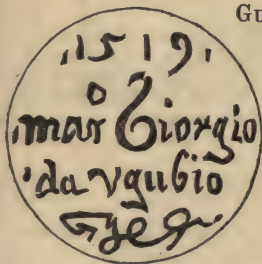 GU
.1519.
o
mar Giorgio
da vgubio